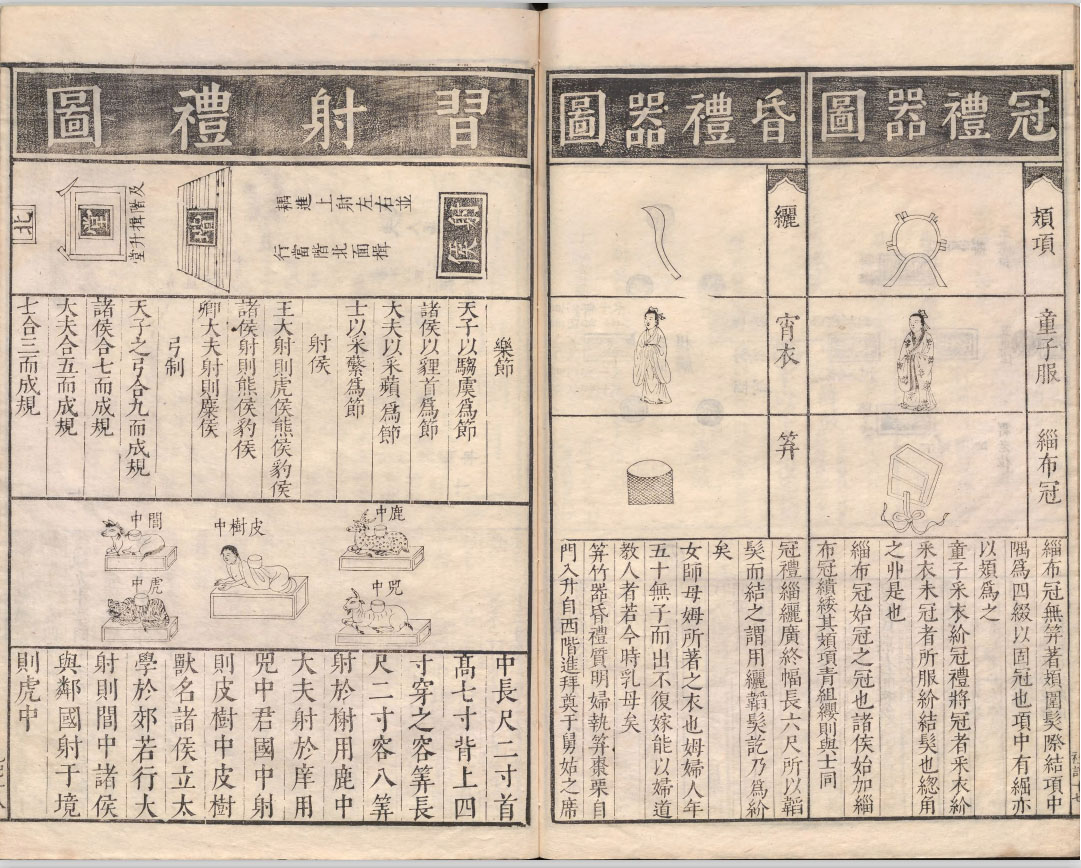 冠禮器圖
頍項
童子服
緇布冠
緇布冠無筓著頍圍髮際結項中
隅爲四綴以固冠也項中有䋿亦
以頍爲之
童子采衣紒冠禮將冠者采衣紒
采衣未冠者所服紒結髮也緫角
之丱是也
緇布冠始冠之冠也諸侯始加緇
布冠繢緌其頍項青組纓則與士同
昏禮器圖
纚
宵衣
筓
冠禮緇纚廣終幅長六尺所以韜
髮而結之謂用纚韜髮訖乃爲紒
矣
女師母姆所著之衣也姆婦人年
五十無子而出不復嫁能以婦道
教人者若今時乳母矣
筓竹器昏禮質明婦執筓棗栗自
門入升自西階進拜奠于舅姑之席
習射禮圖
射侯
並
右
左
射
上
進
耦
揖
面
北
階
當
行
階
及階揖升堂
堂
北
樂節
天子以騶虞爲節
諸侯以貍首爲節
大夫以采蘋爲節
士以采蘩爲節
射侯
王大射則虎侯熊侯豹侯
諸侯射則熊侯豹侯
卿大夫射則麋侯
弓制
天子之弓合九而成規
諸侯合七而成規
大夫合五而成規
士合三而成規
鹿中
兕中
皮樹中
閭中
虎中
中長尺二寸首
高七寸背上四
寸穿之容筭長
尺二寸容八筭
射於榭用鹿中
大夫射於庠用
兕中君國中射
則皮樹中皮樹
獸名諸侯立太
學於郊若行大
射則閭中諸侯
與鄰國射于境
則虎中